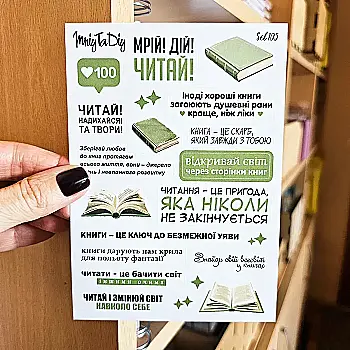 МРІЙ! ДІЙ!
ЧИТАЙ!
Set 105
100
Іноді хороші книги
загоюють душевні рани
краще, ніж ліки
ЧИТАЙ!
НАДИХАЙСЯ
ТА ТВОРИ!
КНИГА – ЦЕ СКАРБ,
ЯКИЙ ЗАВЖДИ З ТОБОЮ
Зберігай любов
до книг протягом
усього життя, вони – джерело
і невпинного розвитку
Відкривай світ
через сторінки книг
ЧИТАННЯ – ЦЕ ПРИГОДА,
ЯКА НІКОЛИ
НЕ ЗАКІНЧУЄТЬСЯ
КНИГИ – ЦЕ КЛЮЧ ДО БЕЗМЕЖНОЇ УЯВИ
книги дарують нам крила
для польоту фантазії
Знайди свій всесвіт
у книгах
читати – це бачити світ
іншими очима
ЧИТАЙ І ЗМІНЮЙ СВІТ
НАВКОЛО СЕБЕ